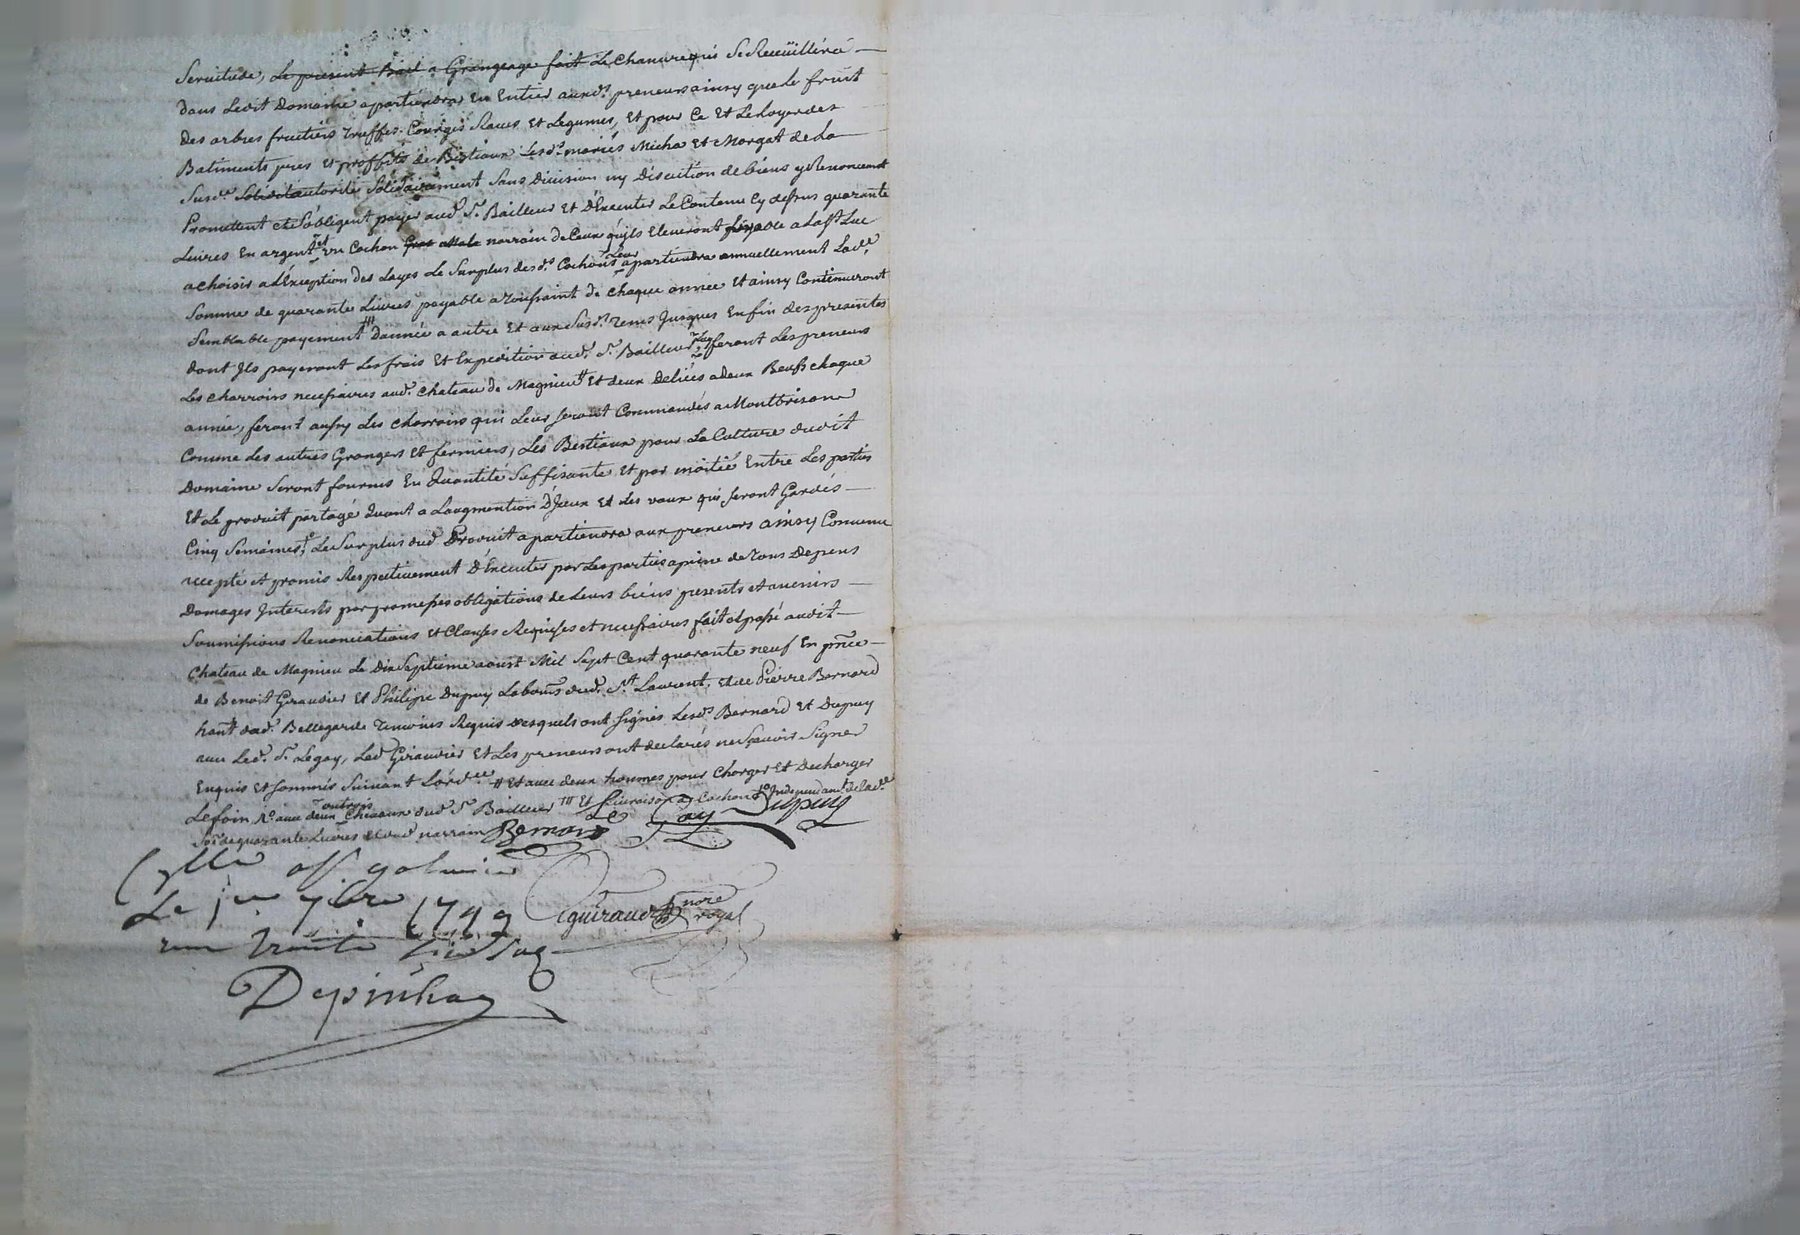 Servitude, Le present Bail a Grangeage fait Le Chanvre qui Se Receüillira
dans Ledit Domaine apartiendra En Entier auxd.s preneurs ainsy que le fruit
des arbres fruitiers truffes Courges Raves Et Legumes, Et pour Ce Et Le Loyer des
Batiments jures Et proffits de Bestiaux Lesd.s mariés Micha Et Morgat de La
Susd.e autorité Solidairement Sans Division ny Discution de biens y Renonceant
Promettent et S'obligent payer aud. S.r Bailleur Et D'Executer Le Contenu Cy dessus quarante
Livres En argent Et un Cochon narrain de Ceux qu'ils Eleveront payable a la S.t Luc
a choisir a L'Exception des Layes Le Surplus des d.s Cochons Leur apartiendra annuellement Lad.e
Somme de quarante Livres payable a Toussaint de chaque année Et ainsy Continueront
Semblable payement ttt D'année a autre Et aux Susd.s termes Jusques En fin des presentes
dont Ils payeront Les frais Et Expedition aud. S.r Bailleur feront Les preneurs
Les charrois necessaires aud. Chateau de Magnieu tt Et deux Deliées a deux Beufs chaque
année, feront aussy Les charrois qui Leur Seront Commandés a Montbrison
Comme Les autres Grangers Et fermiers, Les Bestiaux pour La Culture dudit
Domaine Seront fournis En Quantité Suffisante Et par moitié Entre Les parties
Et Le produit partagé Quant a Laugmention D'Iceux Et Les vaux qui Seront Gardés
Cinq Semaines, Le Surplus dud. Produit apartiendra aux preneurs ainsy Convenu
accepté et promis Respectivement D'Executer par Les parties a peine de Tous Depens
Domages Interests par promesses obligations de Leurs biens presents et avenirs
Soumissions Renonciations Et Clauses Requises et necessaires fait et passé audit
Chateau de Magnieu Le Dix Septieme aoust Mil Sept Cent quarante neuf En p̃nce
de Benoit Giraudier Et Philipe Dupuy Labour.s dud. S.t Laurent, Et de Pierre Bernard
hant dud. Bellegarde Temoins Requis Desquels ont Signés Lesd.s Bernard Et Dupuy
avec Led. S.r Legay, Led. Giraudier Et Les preneurs ont declarés ne Sçavoir Signer
Enquis Et Sommés Suivant L'ord.ce tt Et avec deux hommes pour Charger Et Decharger
ou trois
Le foin, R.o avec deux Chevaux dud. S.r Bailleur ttt Et Livraison du Cochon Independam.t de Lad.e
Som.e de quarante Livres narrain Bernard Le Gay Dupuy
Cllé a S.t galmier
Le j.er 7bre 1749
Reçu trente six sols
Guiraud nore royal
Depinhac